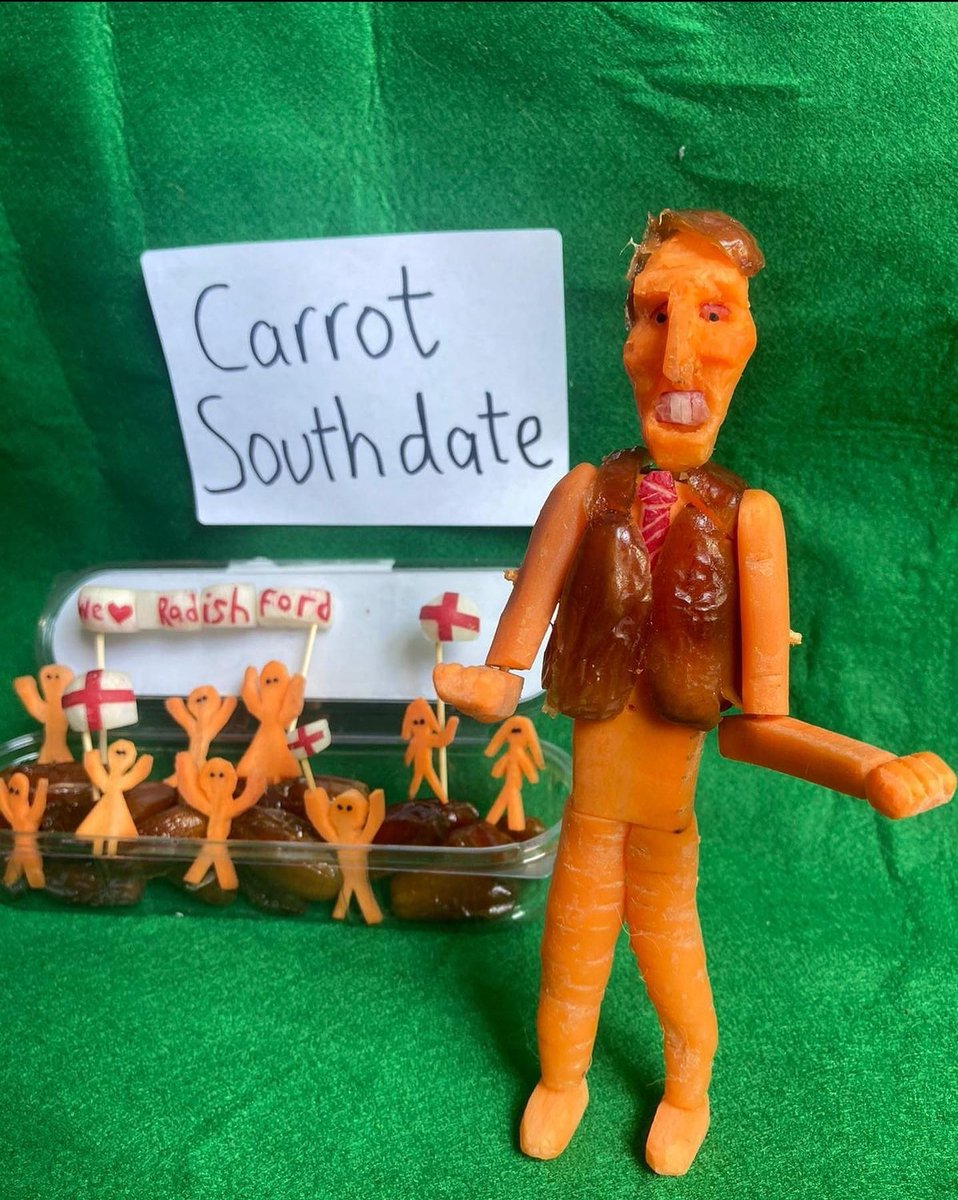 Carrot
Southdate
We ❤ Radish Ford